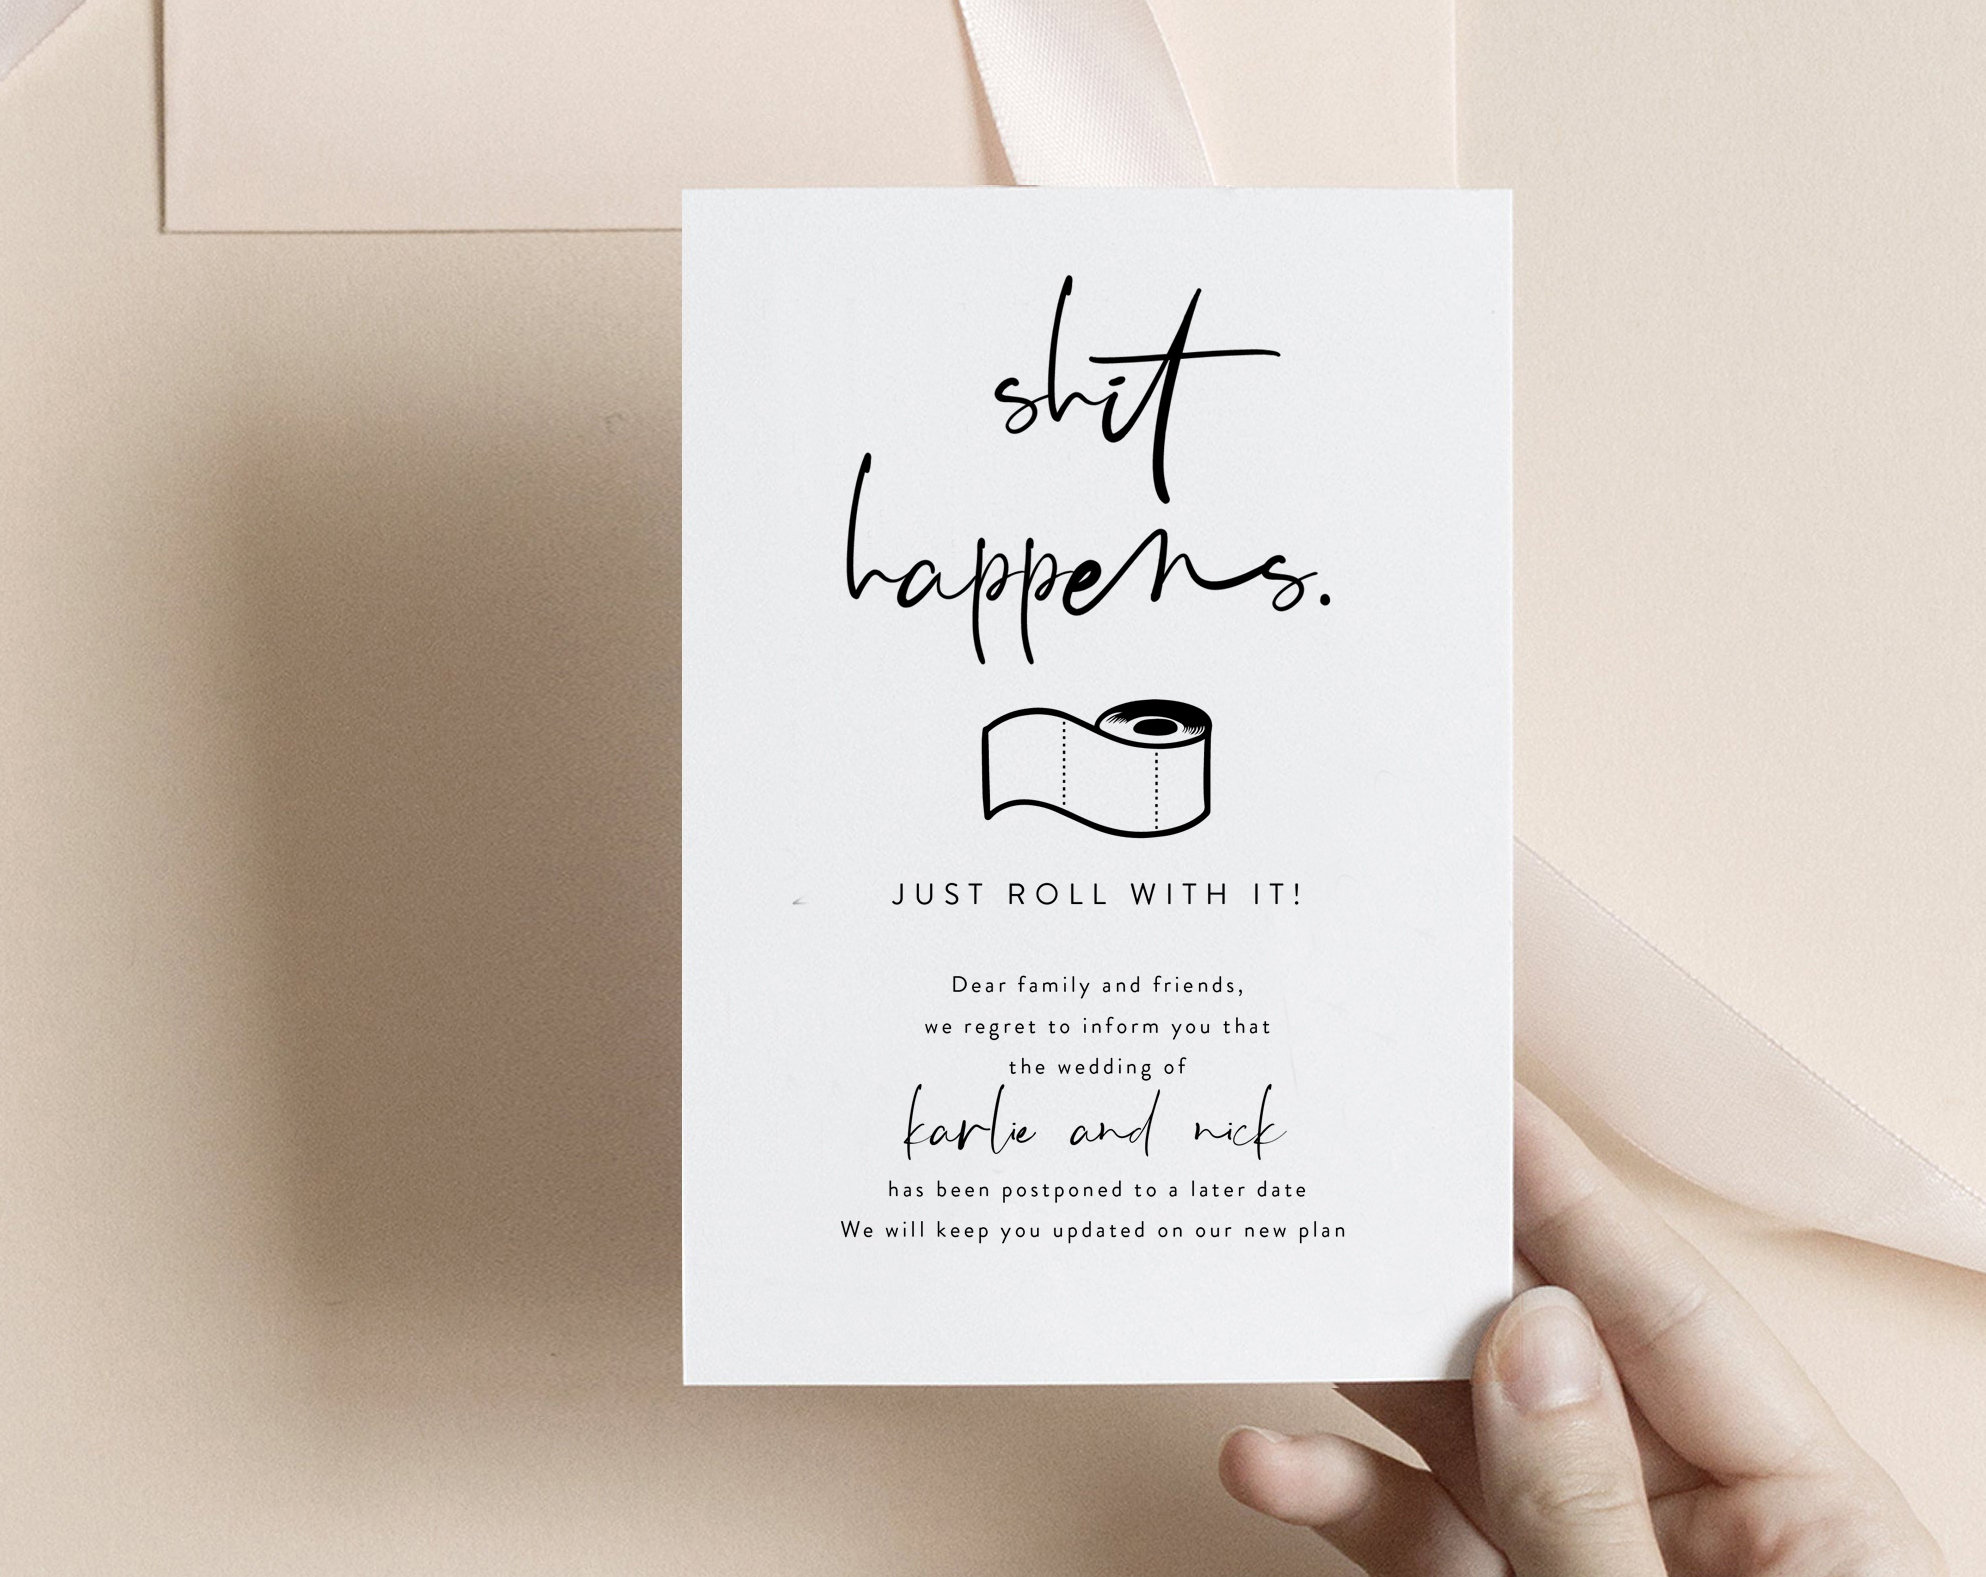 shit
happens.
JUST ROLL WITH IT!
Dear family and friends,
we regret to inform you that
the wedding of
karlie and nick
has been postponed to a later date
We will keep you updated on our new plan